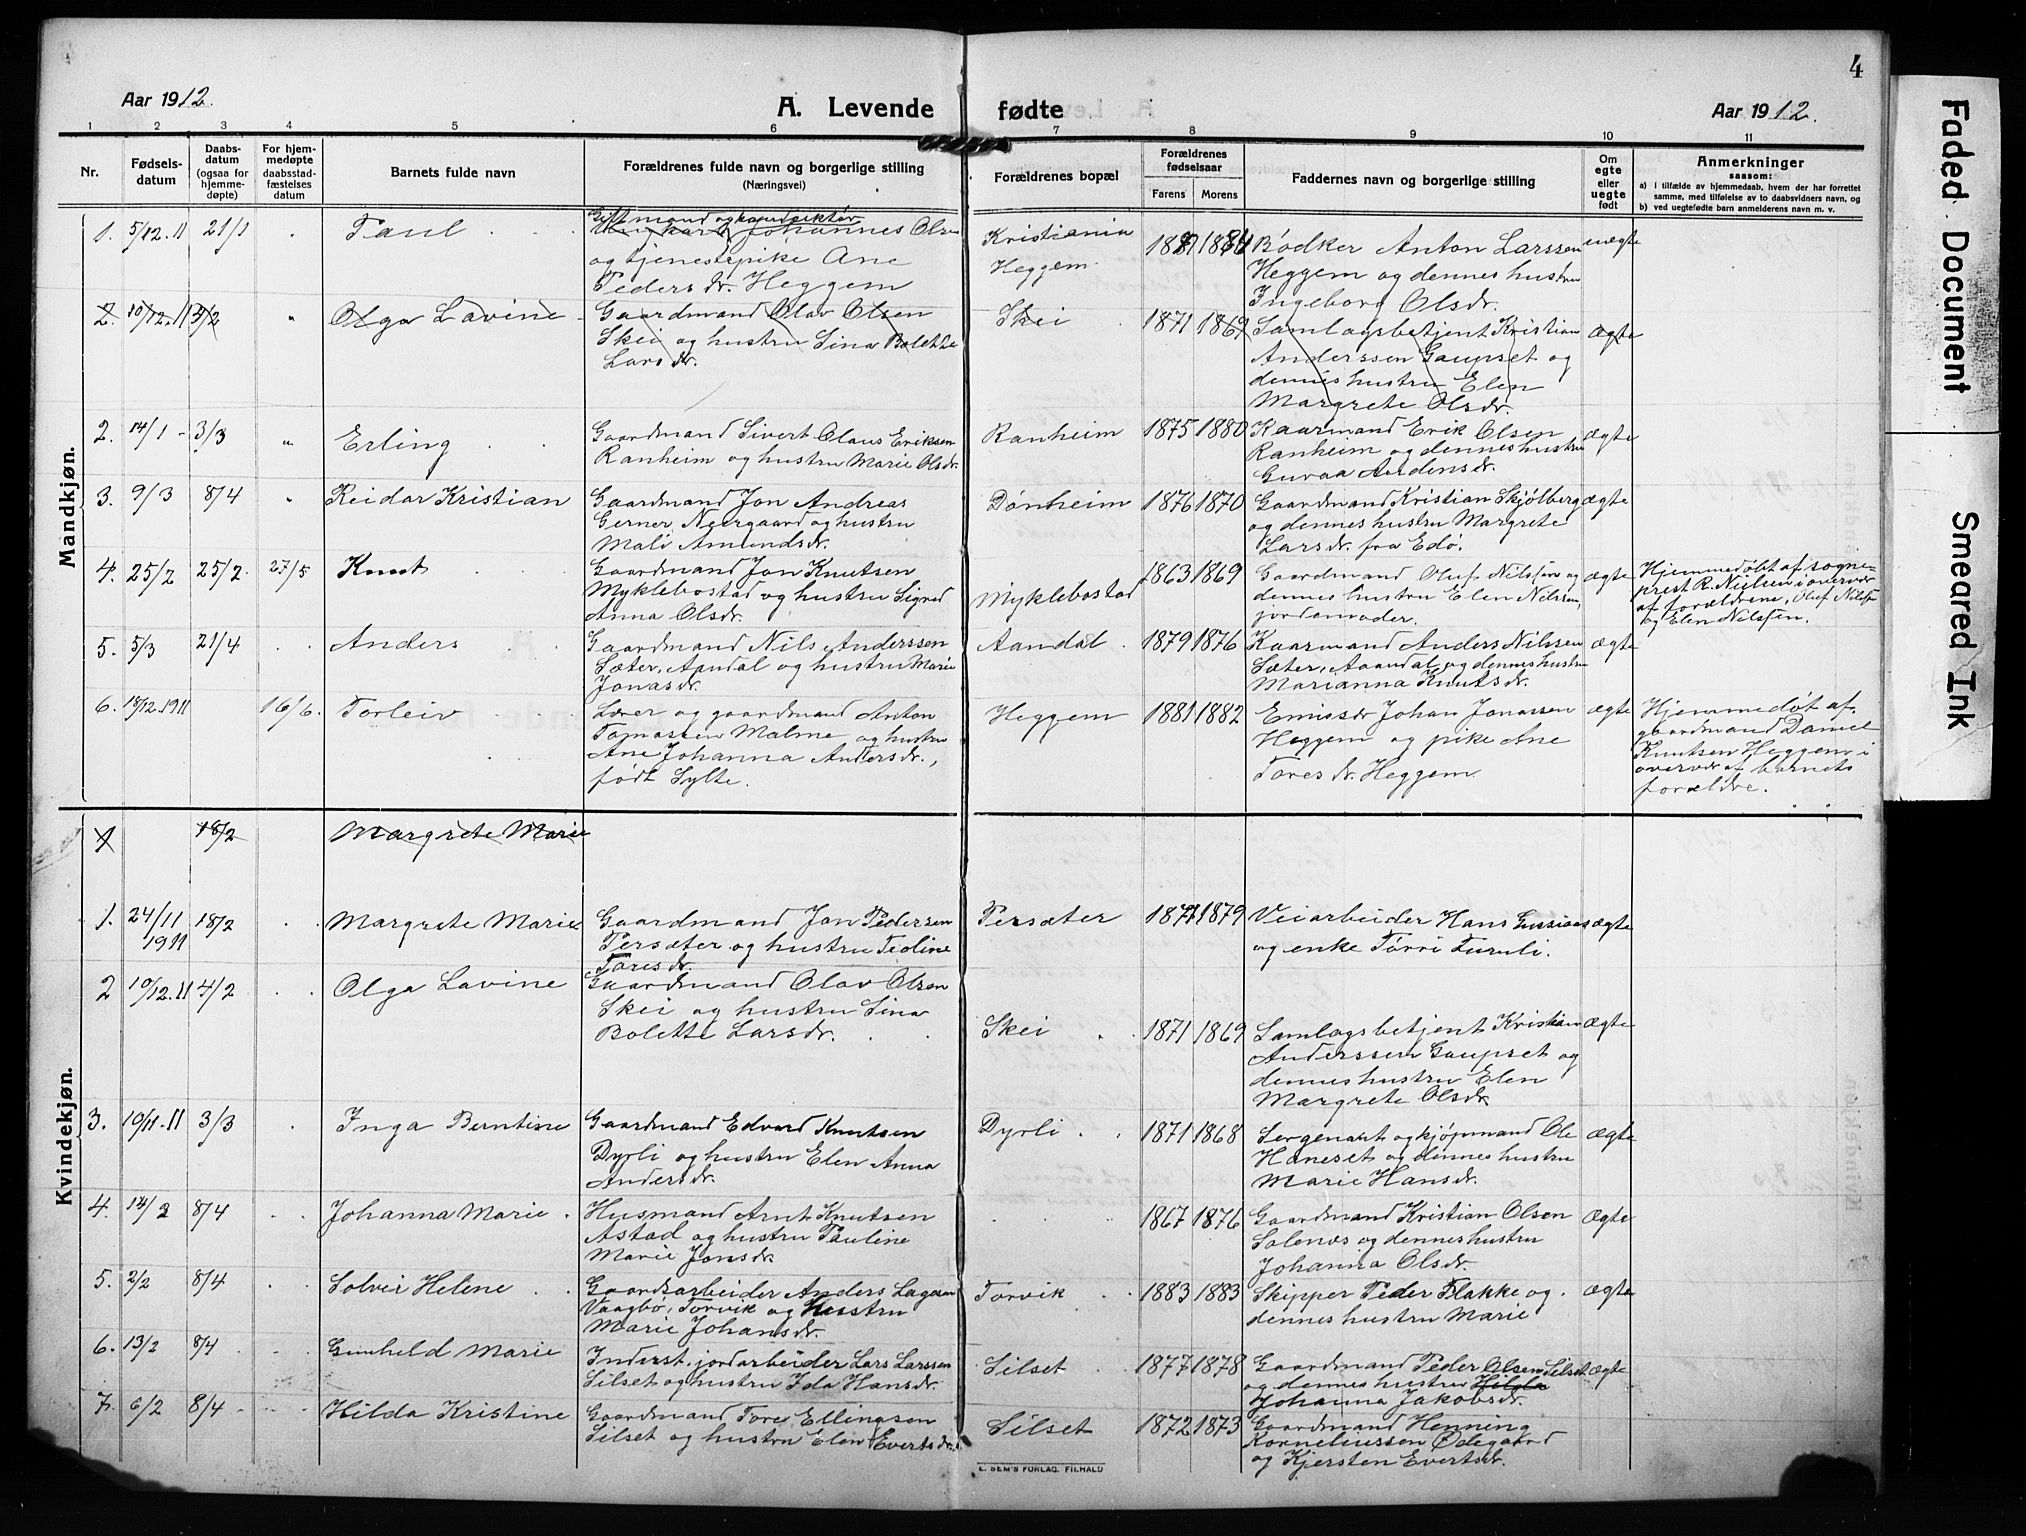 4
Aar 1912.
A. Levende
fødte
Aar 1912.
1 2 3 4 5 6 7 8 9 10 11
Nr.
Fødsels-
datum
Daabs-
datum
(ogsaa for
hjemme-
døpte)
For hjem-
medøpte
daabsstad-
fæstelses
datum
Barnets fulde navn
Forældrenes fulde navn og borgerlige stilling
(Næringsvei)
Forældrenes bopæl
Forældrenes
fødselsaar
Farens Morens
Faddernes navn og borgerlige stilling
Om
egte
eller
uegte
født
Anmerkninger
saasom:
a) i tilfælde av hjemmedaab, hvem der har forrettet
samme, med tilføielse av to daabsvidners navn, og
b) ved uegtefødte barn anmelderens navn m. v.
Mandkjøn.
1. 5/12.11 21/1 Paul
Johannes Olsen
og tjenestepike Ane
Pedersdr. Heggem
Kristiania
Heggem
Bødker Anton Larssen
Heggem og dennes hustru
Ingeborg Olsdr.
uegte
2. 10/12.11 3/2 " Olga Lavine
Gaardmand Olav Olsen
Skei og hustru Sina Bolette
Larsdr.
Skei 1871 1869
Samlagsbetjent Kristian
Anderssen Gaupset og
dennes hustru Elen
Margrete Olsdr.
ægte
2. 14/1 - 3/3 " Erling
Gaardmand Sivert Olaus Eriksen
Ranheim og hustru Marie Olsdr.
Ranheim 1875 1880
Kaarmand Erik Olsen
Ranheim og dennes hustru
Guroaa Andersdr.
ægte
3. 9/3 8/4 " Reidar Kristian
Gaardmand Jon Andreas
Gerner Neergaard og hustru
Mali Amundsdr.
Dønheim 1876 1870
Gaardmand Kristian Skjølberg
og dennes hustru Margrete
Larsdr. fra Edø.
ægte
4. 25/2 25/2. 27/5 Knut
Gaardmand Jon Knutsen
Myklebostad og hustru Sigrid
Anna Olsdr.
Myklebostad 1863 1869
Gaardmand Oluf Nilssen og
dennes hustru Elen Nilssen,
jordmoder.
ægte
Hjemmedøbt af sogne-
prest R. Nielsen i overvær
af forældrene, Oluf Nilssen
og Elen Nilssen.
5. 5/3 21/4 Anders
Gaardmand Nils Anderssen
Sæter, Aandal og hustru Marie
Jonasdr.
Aandal 1879 1876
Kaarmand Anders Nilssen
Sæter, Aandal og dennes hustru
Marianna Knutsdr.
ægte
6. 18/12.1911 16/6. Torleiv
Lærer og gaardmand Anton
Tomassen Malme og hustru
Ane Johanna Andersdr.,
født Sylte.
Heggem 1881 1882
Emissær Johan Jonassen
Heggem og pike Ane
Toresdr. Heggem.
ægte
Hjemmedøt af
gaardmand Daniel
Knutsen Heggem i
overvær af barnets
forældre.
Kvindekjøn.
1 18/2 Margrete Marie
1. 24/11 1911 18/2 Margrete Marie
Gaardmand Jon Pedersen
Persæter og hustru Teoline
Toresdr.
Persæter 1879
Veiarbeider Hans
og enke Tørri Furuli.
ægte
2 10/12.11 4/2 Olga Lavine
Gaardmand Olav Olsen
Skei og hustru Sina
Bolette Larsdr.
Skei 1871 1869
Samlagsbetjent Kristian
Anderssen Gaupset og
dennes hustru Elen
Margrete Olsdr.
ægte
3. 19/11.11 3/3 Inga Berntine
Gaardmand Edvard Knutsen
Dyrli og hustru Elen Anna
Andersdr.
Dyrli 1871 1868
Sergenant og kjøpmand Ole
Haneset og dennes hustru
Marie Hansdr.
ægte
4. 14/2 8/4 Johanna Marie
Husmand Arnt Knutsen
Astad og hustru Pauline
Marie Jonsdr.
1867 1876
Gaardmand Kristian Olsen
Solenæs og dennes hustru
Johanna Olsdr.
ægte
5. 2/2 8/4 Solveir Helene
Gaardsarbeider Anders Lagesen
Vaagbø, Torvik og hustru
Marie Johansdr.
Torvik 1883 1883
Skipper Peder Flakke og
dennes hustru Marie
ægte
6. 13/2 8/4 Gunheld Marie
Inderst, jordarbeider Lars Larssen
Silset og hustru Ida Hansdr.
Silset 1877 1878
Gaardmand Peder Olsen Silset
og dennes hustru Hilda
Johanna Jakobsdr.
ægte
7. 6/2 8/4 Hilda Kristine
Gaardmand Tore Ellingsen
Silset og hustru Elen Evertsdr.
Silset 1872 1873
Gaardmand Henning
Korneliussen Ødegaard
og Kjersten Evertsdr.
E. SEM'S FORLAG, FHHALD
Faded Document
Smeared Ink